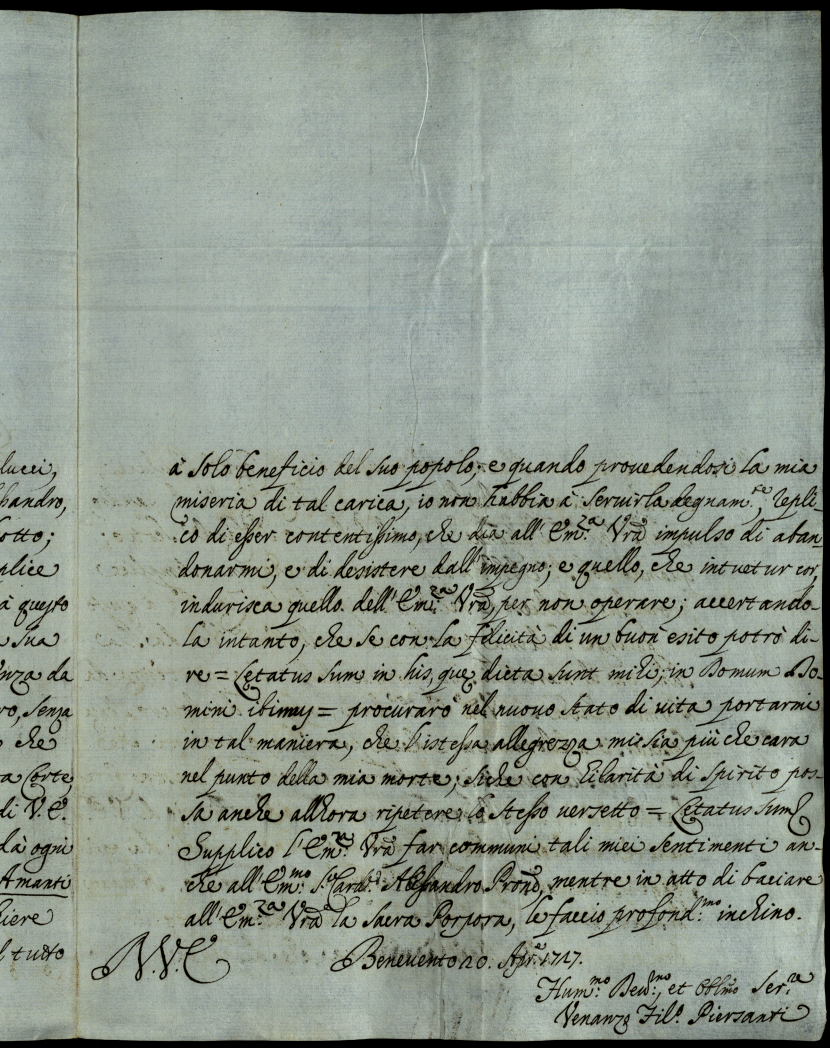 lucci,
ssandro,
otto;
plice
à questo
a sua
enza da
ro, senza
che
a Corte,
di V. E.
dà ogni
Amanti
tutto
à solo beneficio del suo popolo; e quando provedendosi la mia
miseria di tal carica, io non habbia à servirla degnam.te, repli-
co di esser contentissimo, che dia all' Em.za Vrã impulso di aban-
donarmi, e di desistere dall' impegno; e quello, che intuetur cor,
indurisca quello dell' Em.za Vrã, per non operare; accertando-
la intanto, che se con la felicità di un buon esito potrò di-
re = Letatus sum in his, que dicta sunt mihi, in Domum Do-
mini ibimus = procurarò nel nuovo stato di vita portarmi
in tal maniera, che l'istessa allegrezza mi sia più che cara
nel punto della mia morte; siche con hilarità di spirito pos-
sa anche allhora ripetere lo stesso versetto = Letatus sum &
Supplico l' Em.za Vrã far communi tali miei sentimenti an-
che all' Em.mo S. Card.le Alessandro Prone, mentre in atto di baciare
all' Em.za Vrã la Sacra Porpora, le faccio profond.mo inchino.
Benevento 20. Apr.e 1727.
Hum.mo Dev.mo, et Obl.mo Ser.re
Venanzo Fil.o Piersanti